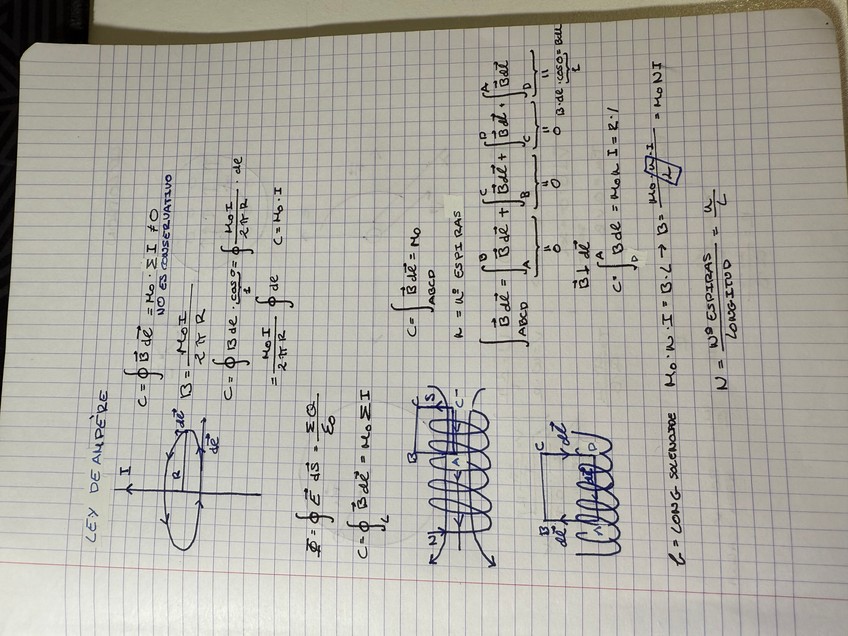 LEY DE AMPÈRE
I
R
dl
dl
C = ∮ B dl = M₀ · Σ I ≠ 0
NO ES CONSERVATIVO
B = M₀ I / 2 π R
C = ∮ B dl · cos 0 = ∮ M₀ I / 2 π R · dl
1
= M₀ I / 2 π R ∮ dl C = M₀ · I
Φ = ∮ E dS = Σ Q / ε₀
C = ∮_L B dl = M₀ Σ I
N
B
A
C
S
C = ∫_ABCD B dl = M₀
n = Nº ESPIRAS
∫_ABCD B dl = ∫_A^B B dl + ∫_B^C B dl + ∫_C^D B dl + ∫_D^A B dl
0 0 0 B · dl · cos 0 = Bdl
1
B ⊥ dl
B
C
dl
dl
A
D
dl
C = ∫_D^A B dl = M₀ n I = B · l
l = LONG SOLENOIDE M₀ · n · I = B · L → B = M₀ · n · I / L = M₀ N I
N = Nº ESPIRAS / LONGITUD = n / L